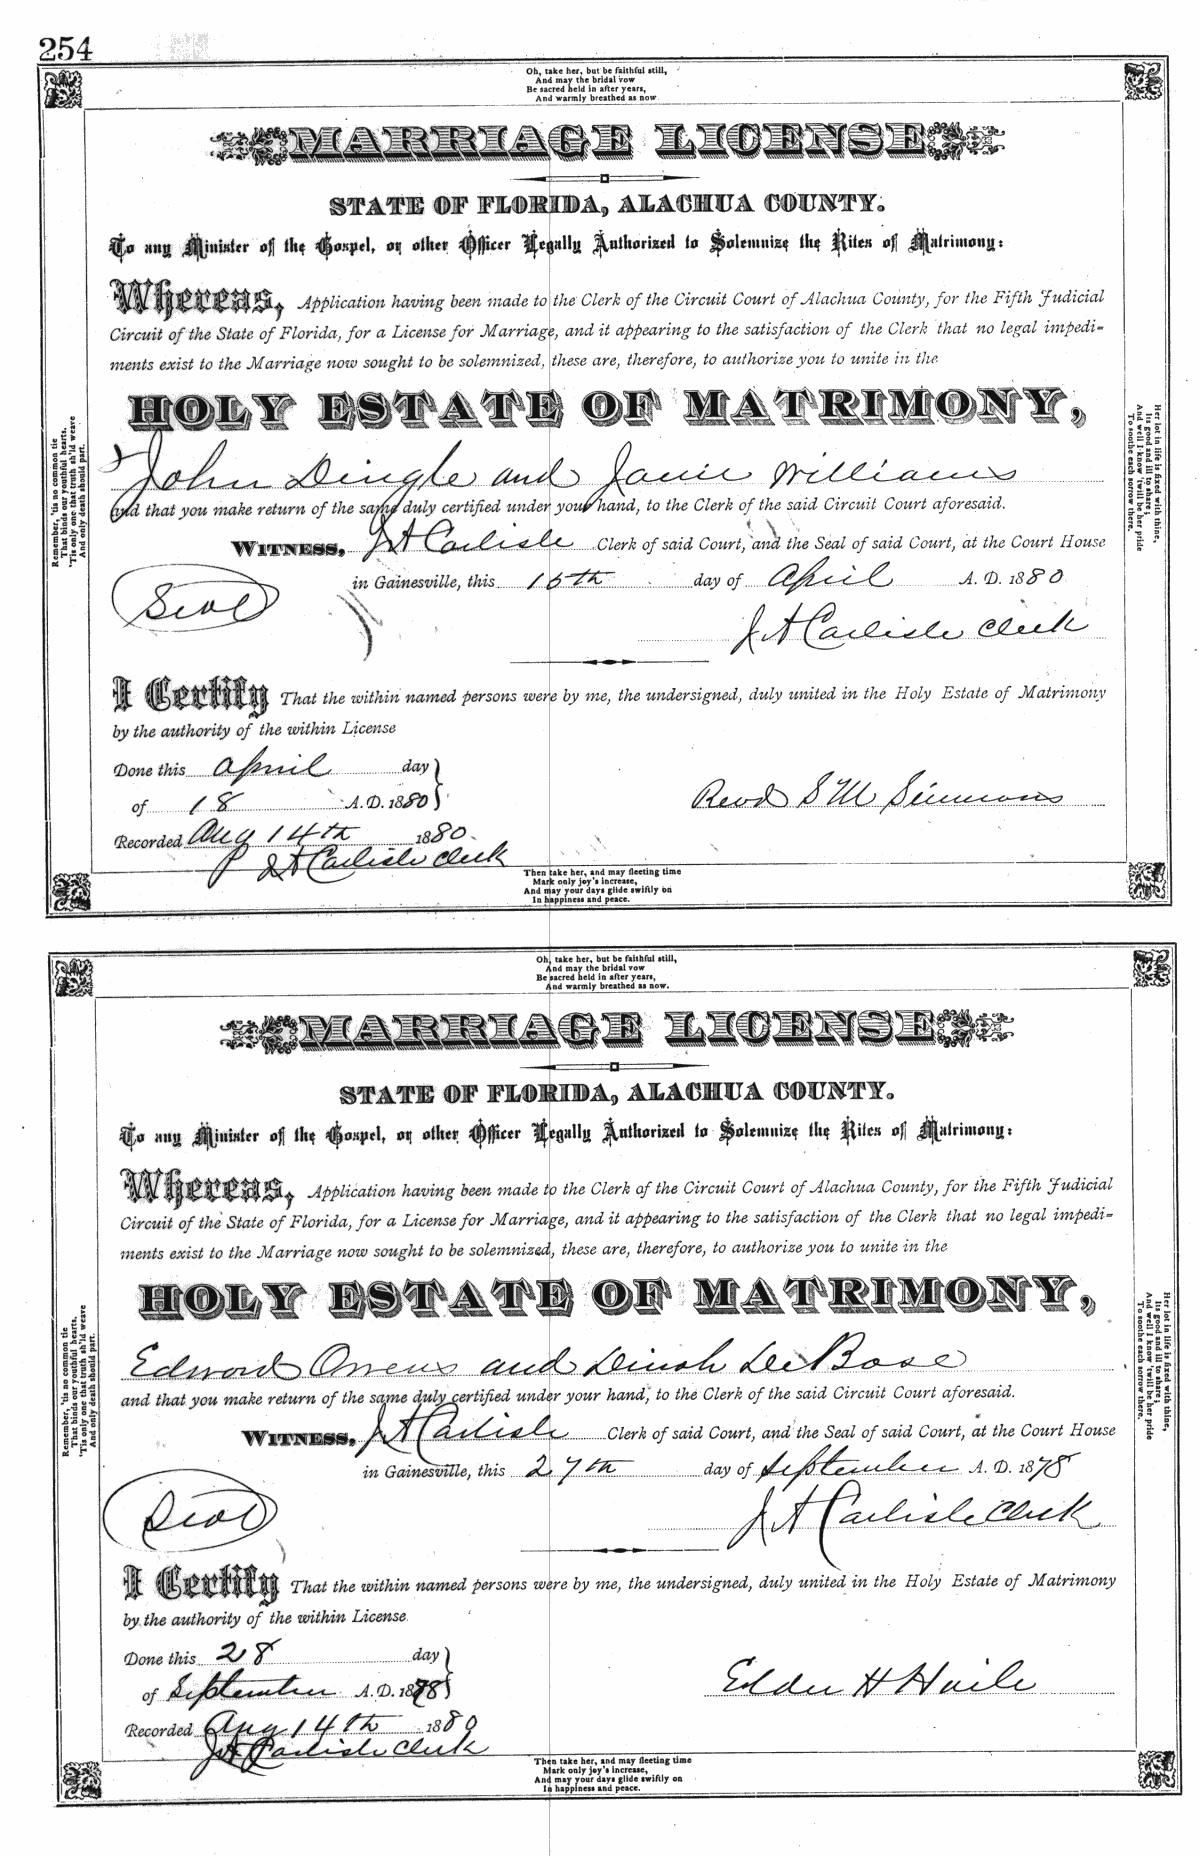 254
Oh, take her, but be faithful still,
And may the bridal vow
Be sacred held in after years,
And warmly breathed as now
MARRIAGE LICENSE
STATE OF FLORIDA, ALACHUA COUNTY.
To any Minister of the Gospel, or other Officer Legally Authorized to Solemnize the Rites of Matrimony:
Whereas, Application having been made to the Clerk of the Circuit Court of Alachua County, for the Fifth Judicial
Circuit of the State of Florida, for a License for Marriage, and it appearing to the satisfaction of the Clerk that no legal impedi-
ments exist to the Marriage now sought to be solemnized, these are, therefore, to authorize you to unite in the
HOLY ESTATE OF MATRIMONY,
John Dingle and Janie Williams
and that you make return of the same duly certified under your hand, to the Clerk of the said Circuit Court aforesaid.
WITNESS, J A Carlisle Clerk of said Court, and the Seal of said Court, at the Court House
in Gainesville, this 15th day of April A. D. 1880
Seal
J A Carlisle Clerk
I Certify That the within named persons were by me, the undersigned, duly united in the Holy Estate of Matrimony
by the authority of the within License
Done this April day
of 18 A. D. 1880
Revd S M Simmons
Recorded Aug 14th 1880
J A Carlisle Clerk
Then take her, and may fleeting time
Mark only joy's increase,
And may your days glide swiftly on
In happiness and peace.
Remember, 'tis no common tie
That binds our youthful hearts,
'Tis only one that truth sh'ld weave
And only death should part.
Her lot in life is fixed with thine,
Its good and ill to share;
And well I know 'twill be her pride
To soothe each sorrow there.
Oh, take her, but be faithful still,
And may the bridal vow
Be sacred held in after years,
And warmly breathed as now.
MARRIAGE LICENSE
STATE OF FLORIDA, ALACHUA COUNTY.
To any Minister of the Gospel, or other Officer Legally Authorized to Solemnize the Rites of Matrimony:
Whereas, Application having been made to the Clerk of the Circuit Court of Alachua County, for the Fifth Judicial
Circuit of the State of Florida, for a License for Marriage, and it appearing to the satisfaction of the Clerk that no legal impedi-
ments exist to the Marriage now sought to be solemnized, these are, therefore, to authorize you to unite in the
HOLY ESTATE OF MATRIMONY,
Edward Owens and Dinah DeBose
and that you make return of the same duly certified under your hand, to the Clerk of the said Circuit Court aforesaid.
WITNESS, J A Carlisle Clerk of said Court, and the Seal of said Court, at the Court House
in Gainesville, this 27th day of September A. D. 1878
Seal
J A Carlisle Clerk
I Certify That the within named persons were by me, the undersigned, duly united in the Holy Estate of Matrimony
by the authority of the within License
Done this 28 day
of September A. D. 1878
Elder H Haile
Recorded Aug 14th 1880
J A Carlisle Clerk
Then take her, and may fleeting time
Mark only joy's increase,
And may your days glide swiftly on
In happiness and peace.
Remember, 'tis no common tie
That binds our youthful hearts,
'Tis only one that truth sh'ld weave
And only death should part.
Her lot in life is fixed with thine,
Its good and ill to share;
And well I know 'twill be her pride
To soothe each sorrow there.